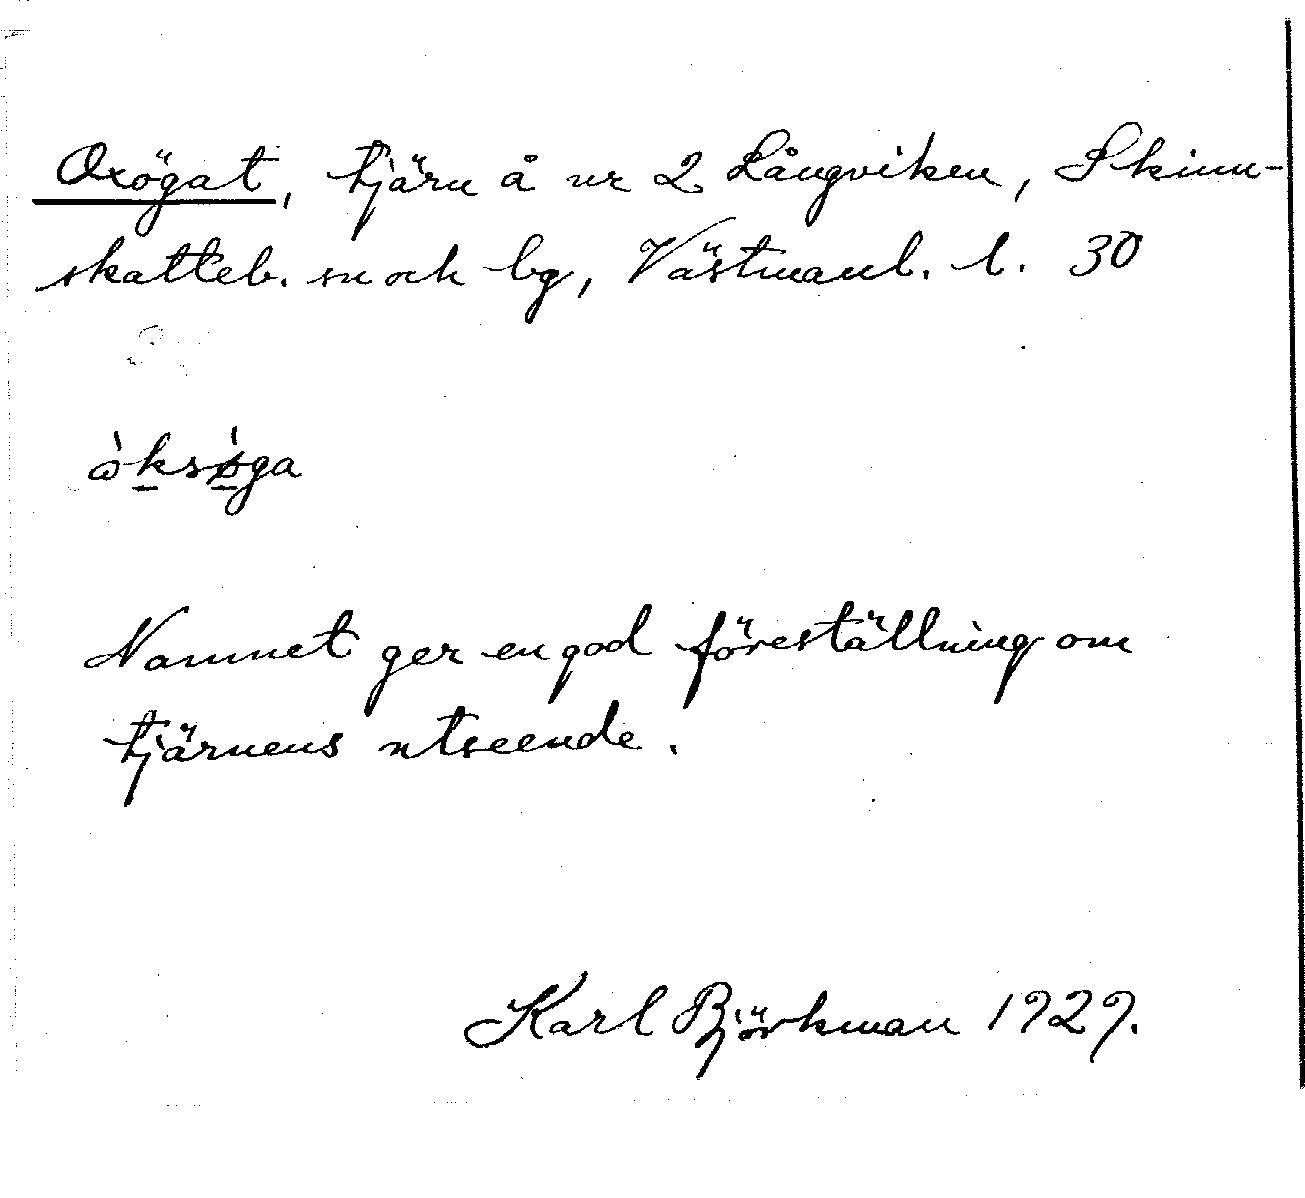 Oxögat, tjärn å nr 2 Långviken, Skinn-
skatteb. sn och bg, Västmanl. l. 30
òksø̀ga
Namnet ger en god föreställning om
tjärnens utseende.
Karl Björkman 1929.